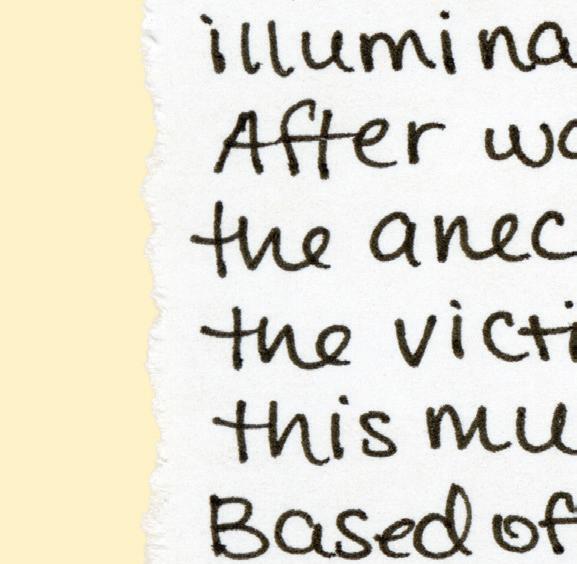 illumina
After wo
the anec
the victi
this mu
Based of